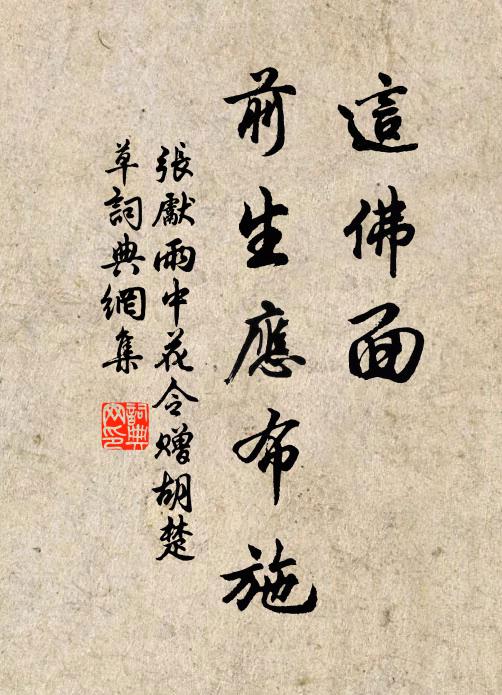 這佛面
前生應布施
張獻雨中花令赠胡楚
草詞典網集
詞典
网印